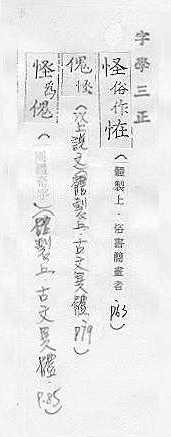 字學三正
怪俗作恠(體製上．俗書簡畫者 p63)
傀怪(以上說文)(體製上．古文異體．p79)
怪爲傀(體製上．古文異體．p.85)